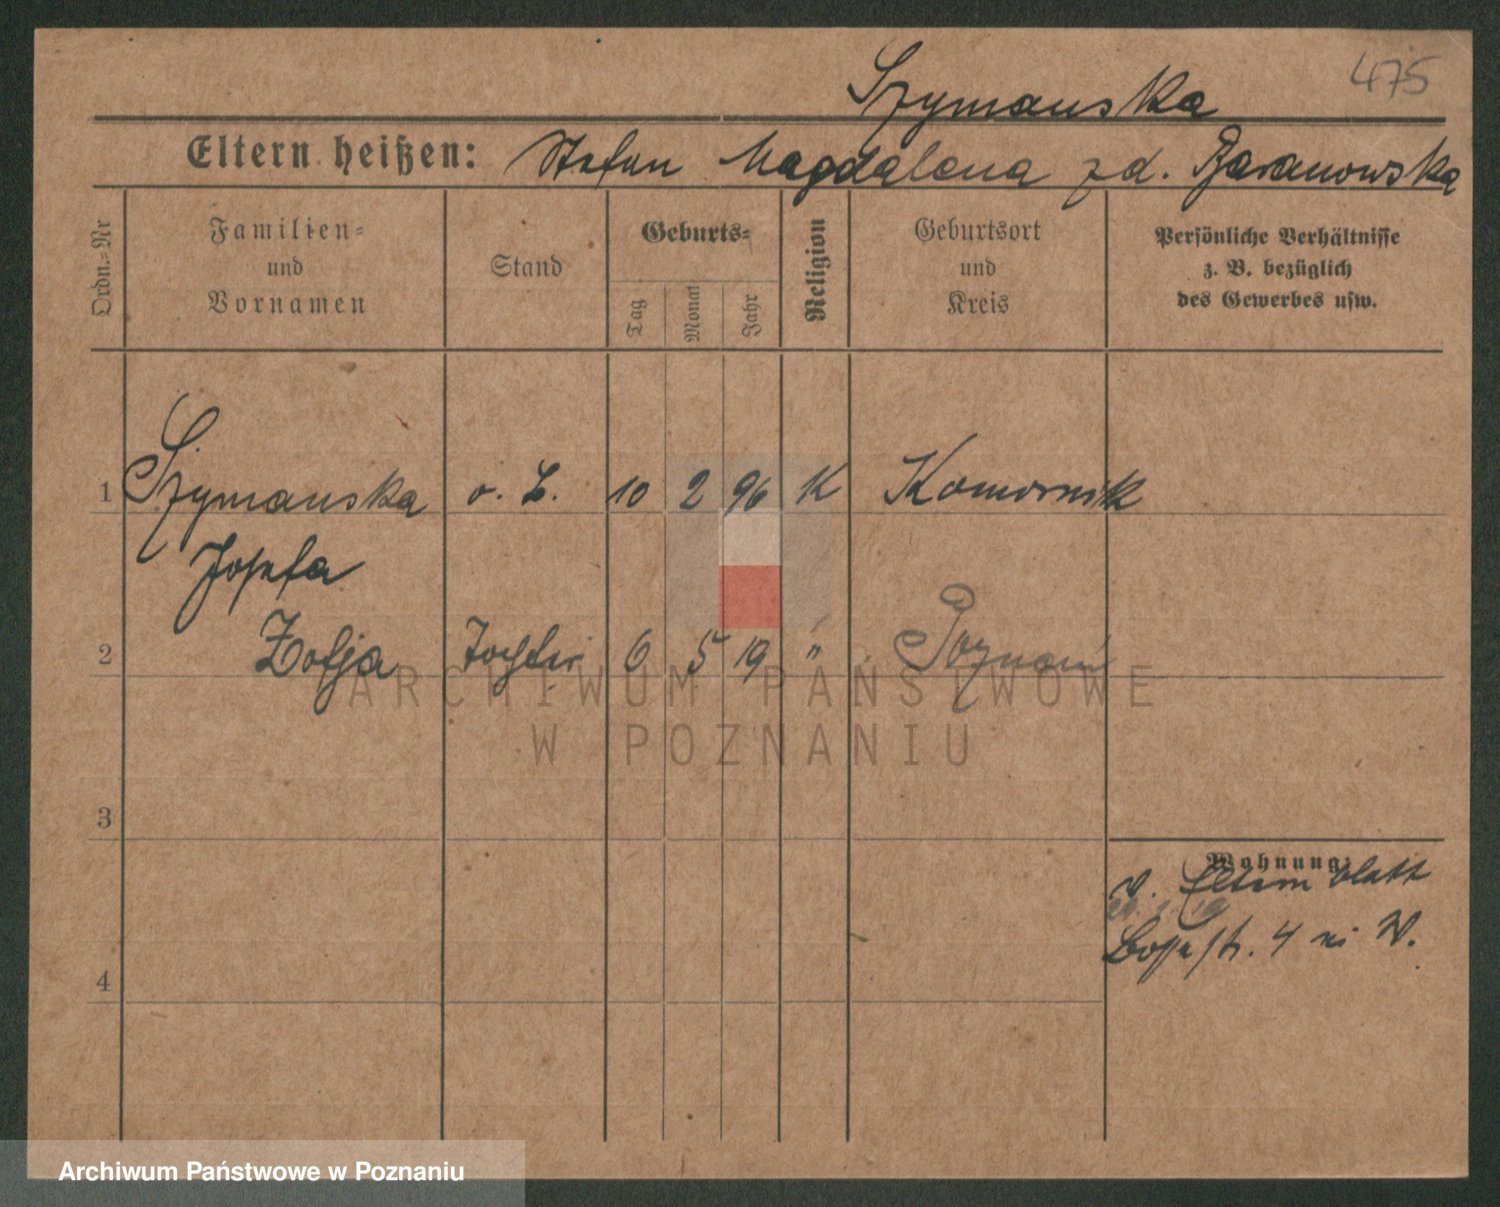 475
Szymanska
Eltern heißen: Stefan Magdalena zd. Baranowska
Ordn.-Nr
Familien-
und
Vornamen
Stand
Geburts-
Tag
Monat
Jahr
Religion
Geburtsort
und
Kreis
Persönliche Verhältnisse
z. B. bezüglich
des Gewerbes usw.
1 Szymanska o. B. 10 2 96 K Komornik
Josefa
2 Zofja Tochter 6 5 19 " Poznań
ARCHIWUM PAŃSTWOWE
W POZNANIU
3
Wohnung:
Eltern blatt
4 W.
4
Archiwum Państwowe w Poznaniu